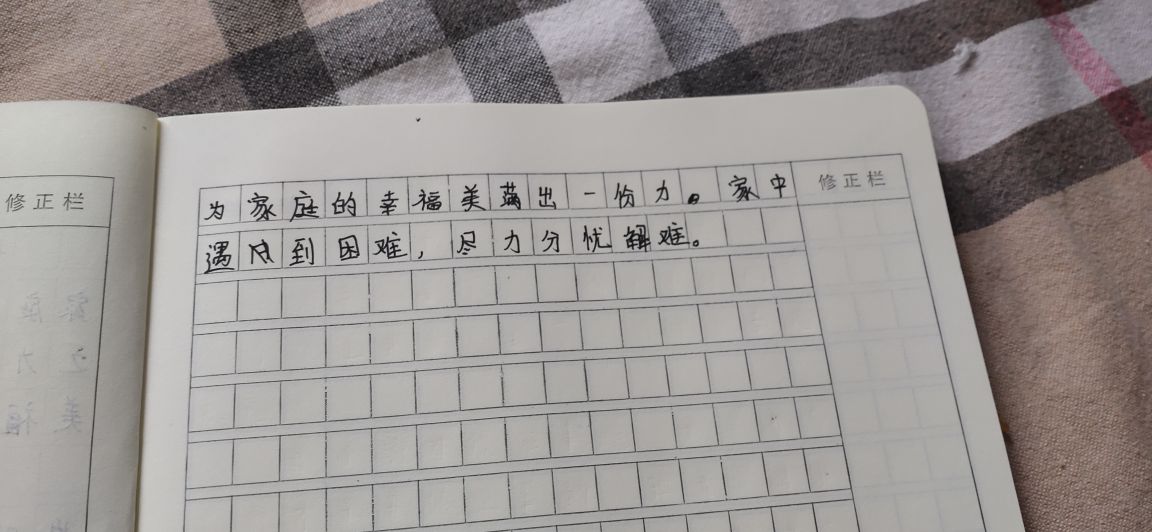 修正栏
为家庭的幸福美满出一份力。家中
修正栏
遇到困难，尽力分忧解难。